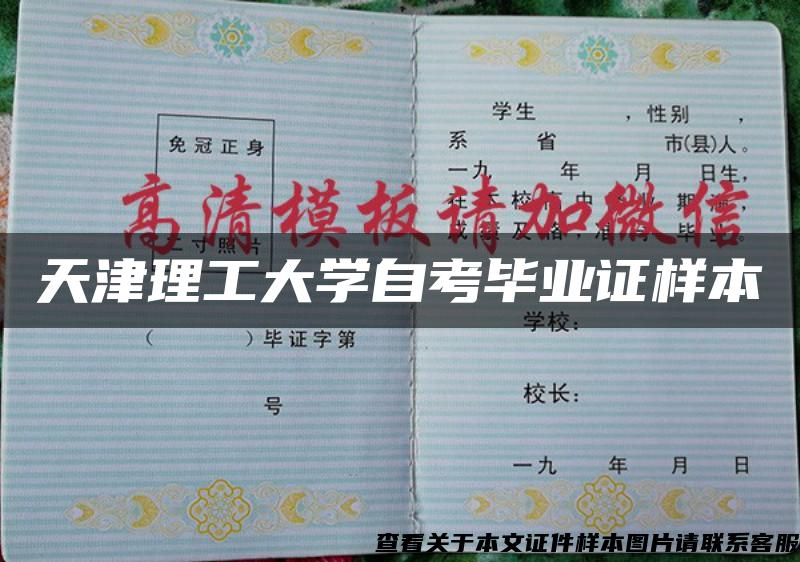 免冠正身
二寸照片
（ ）毕证字第
号
学生 ，性别 ，
系 省 市(县)人。
一九 年 月 日生，
高清模板请加微信
天津理工大学自考毕业证样本
学校：
校长：
一九 年 月 日
查看关于本文证件样本图片请联系客服